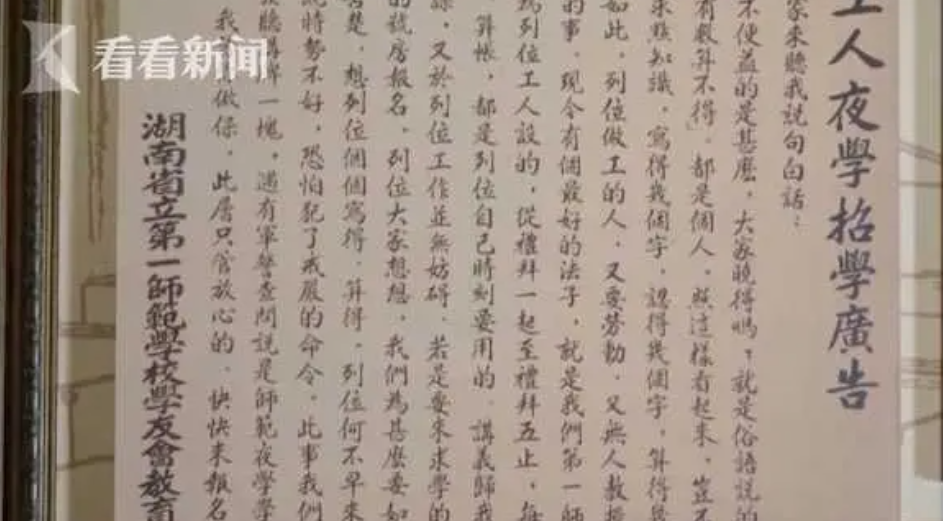 看看新闻
工人夜學招學廣告
家來聽我說句白話：
不便益的是甚麼，大家曉得嗎？就是俗語說的
有數算不得，都是個人，照這樣看起來，豈不
求點知識，寫得幾個字，認得幾個字，算得
如此，列位做工的人，又要勞動，又無人教授
的事。現今有個最好的法子，就是我們第一師
列位工人設的，從禮拜一起至禮拜五止，每
算帳，都是列位自己時刻要用的，講義歸我
又於列位工作並無妨碍，若是要來求學的
的號房報名，列位大家想想，我們為甚麼要如
楚，想列位個個寫得、算得，列位何不早來
時勢不好，恐怕犯了戒嚴的命令，此事我們
聽講牌一塊，遇有軍警查問說是師範夜學學
做保，此層只管放心的，快快來報名
湖南省立第一師範學校學友會教育